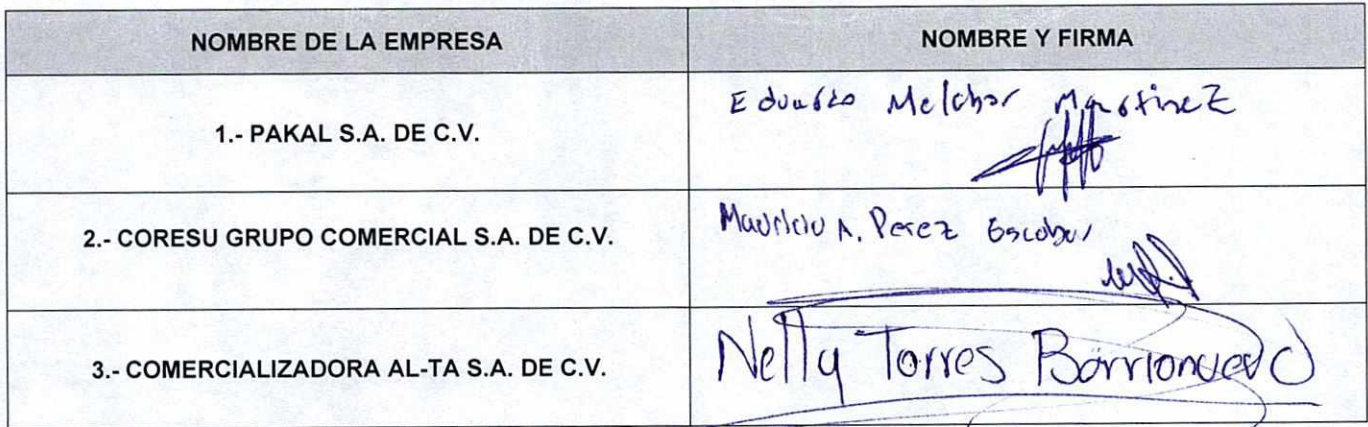 NOMBRE DE LA EMPRESA NOMBRE Y FIRMA
1.- PAKAL S.A. DE C.V. Eduardo Melchor Martinez
2.- CORESU GRUPO COMERCIAL S.A. DE C.V. Mauricio A. Perez Escobar
3.- COMERCIALIZADORA AL-TA S.A. DE C.V. Nelly Torres Barrionuevo